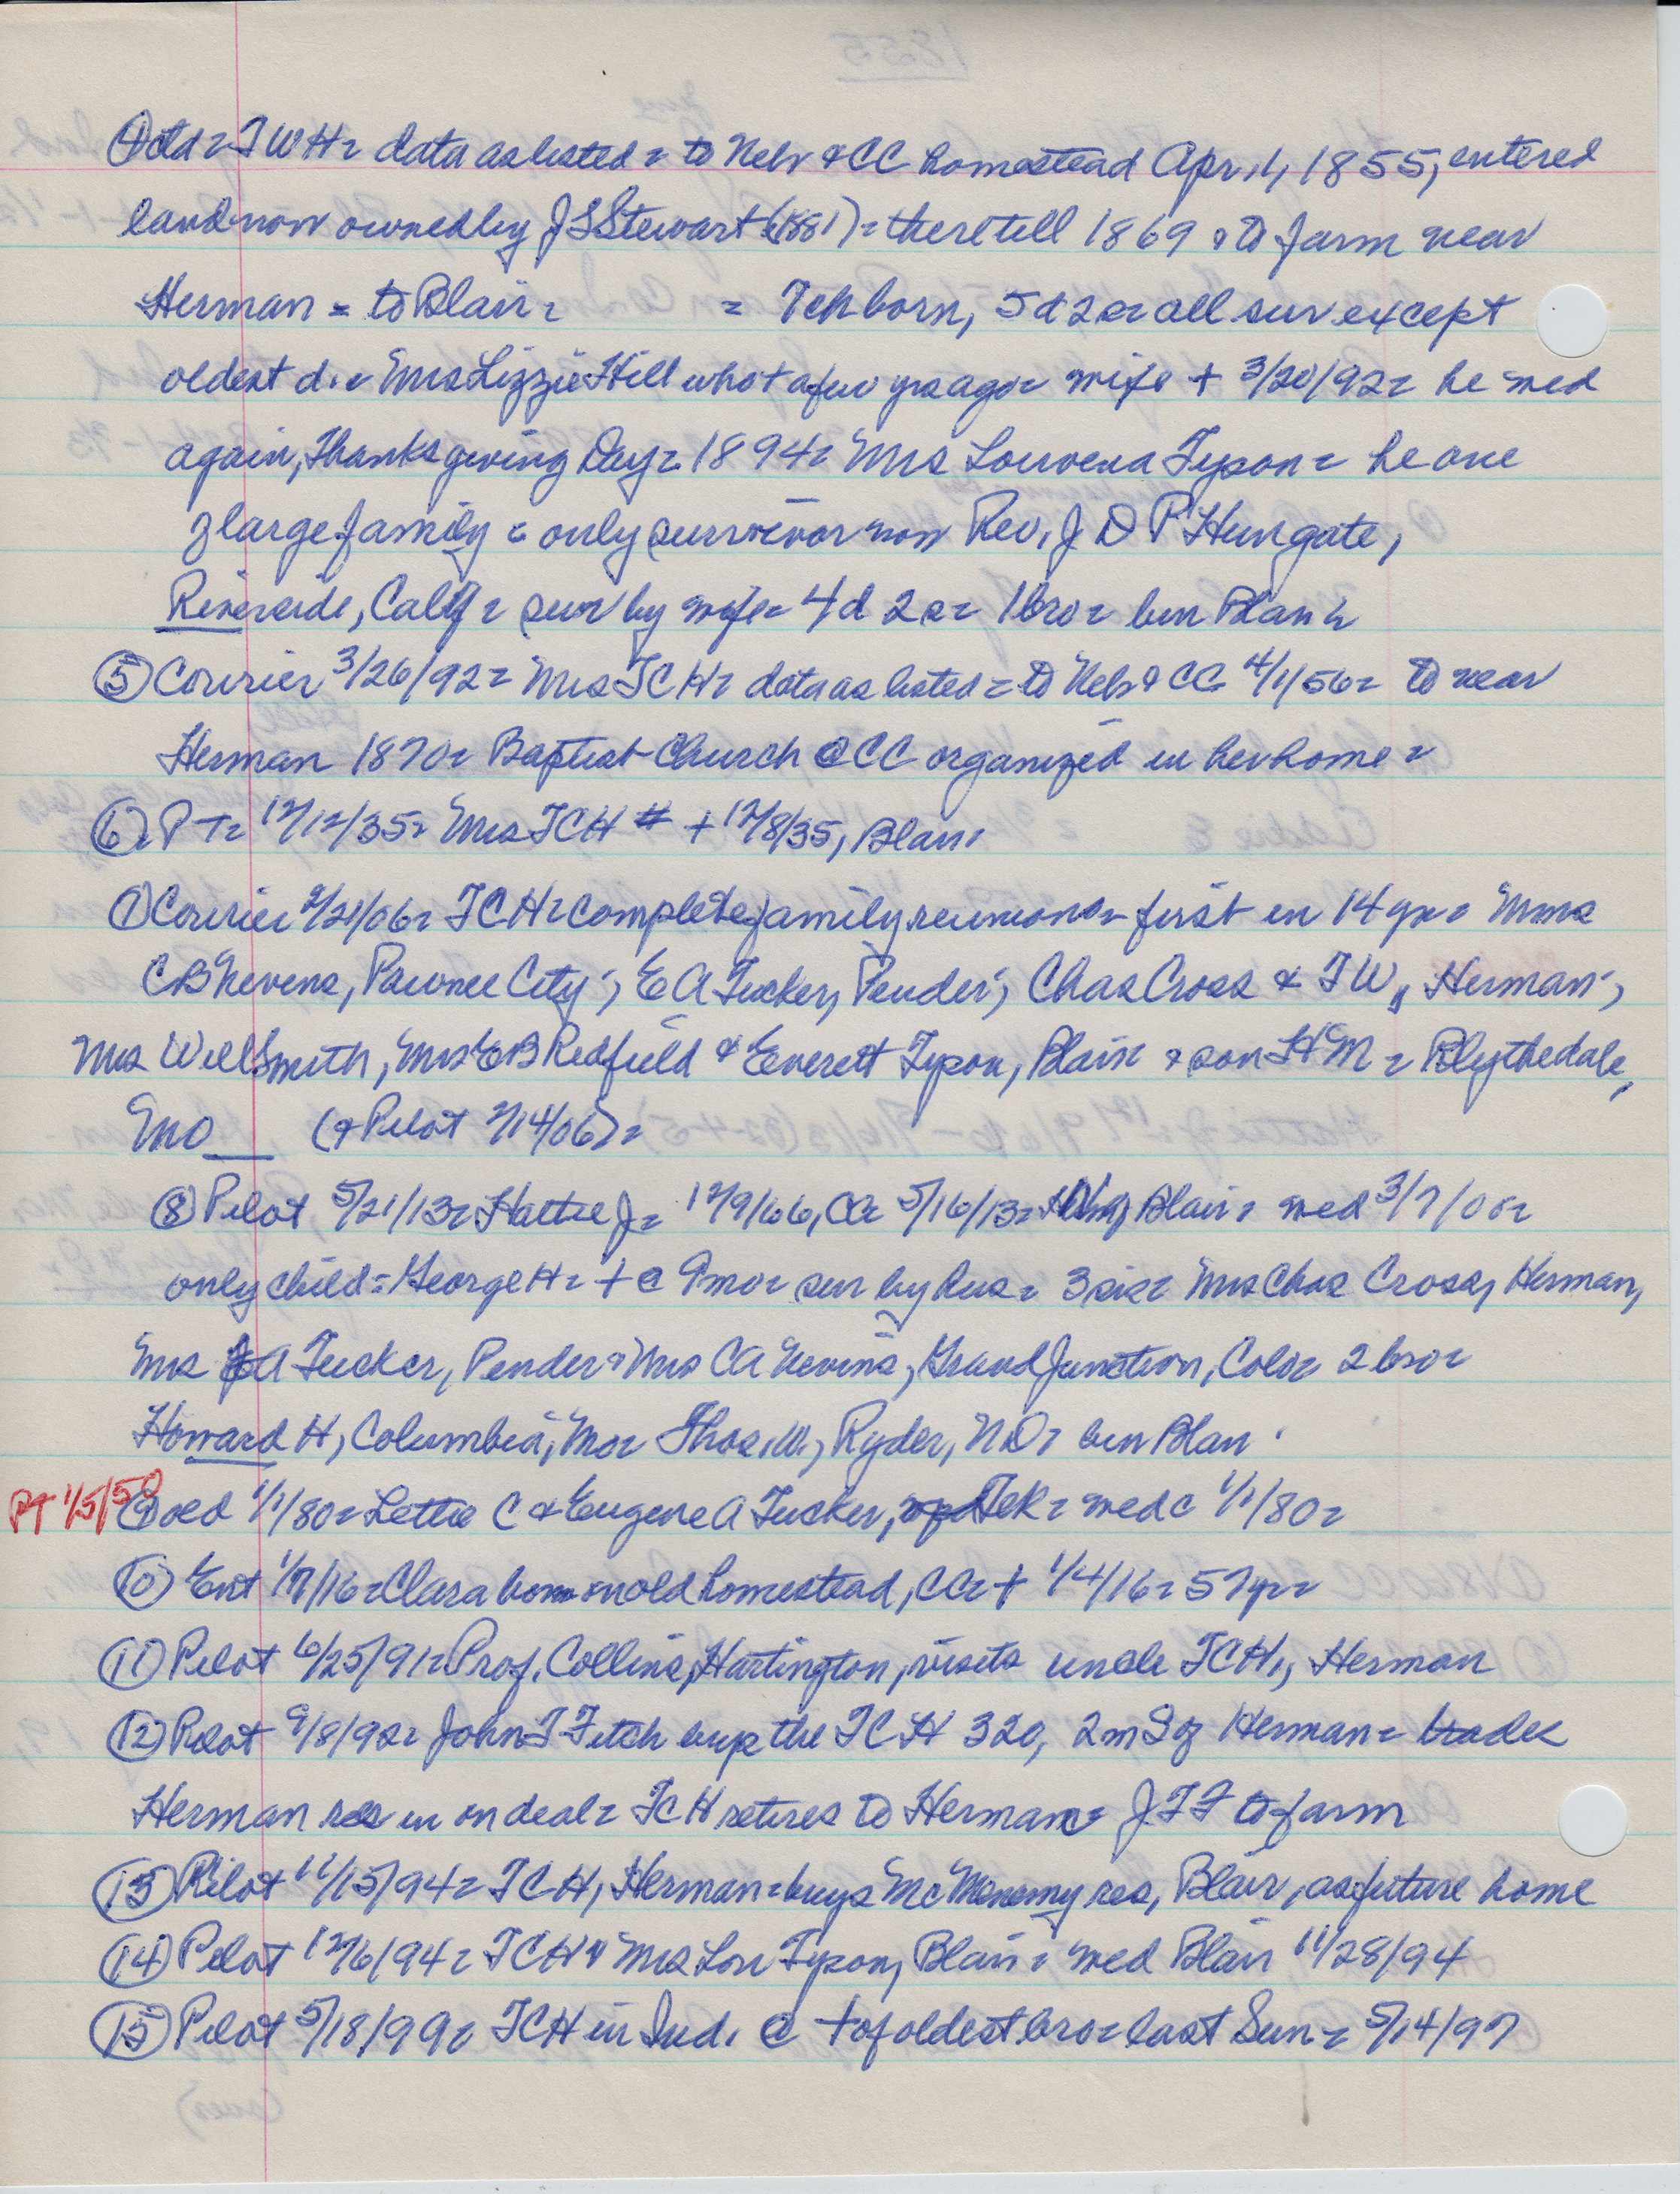 ④ctd = T W H = data as listed = to Nebr & CC homestead Apr. 1, 1855, entered
land now owned by J S Stewart (1881) = there till 1869 & to farm near
Herman = to Blair = = Teh born, 5 d 2 s = all sur except
oldest d. = Mrs Lizzie Hill who + a few yrs ago = wife + 3/20/92 = he med
again, Thanksgiving Day = 1894 = Mrs Louvena Tyson = he one
of large family = only survivor now Rev. J D P Hungate,
Riverside, Calif = sur by wife = 4 d 2 s = 1 bro = bur Blair =
⑤ Courier 3/26/92 = Mrs T C H = data as listed = to Nebr & CC 4/1/56 = to near
Herman 1870 = Baptist Church @ CC organized in her home =
⑥ P T = 12/12/35 = Mrs T C H # + 12/8/35, Blair
⑦ Courier 2/21/06 = T C H = complete family reunion = first in 14 yrs = Mmes
C B Nevens, Pawnee City; E A Tucker, Pender; Chas Cross & T W, Herman;
Mrs Will Smith, Mrs E B Redfield & Everett Tyson, Blair & son H M = Blythedale,
Mo (& Pilot 2/14/06) =
⑧ Pilot 5/21/13 = Hattie J = 12/9/66, CC = 5/16/13 = Blair = med 3/7/00 =
only child = George H = + @ 9 mo = sur by hus = 3 sis = Mrs Chas Cross, Herman,
Mrs E A Tucker, Pender & Mrs C A Nevins, Grand Junction, Colo = 2 bro =
Howard H, Columbia, Mo = Thos. W., Ryder, N D = bur Blair
PT 1/5/50 ⑨ oed 1/1/80 = Lettie C & Eugene A Tucker, Tek = med c 1/1/80 =
⑩ Ent 1/7/16 = Clara born on old homestead, CC = + 1/4/16 = 57 yr =
⑪ Pilot 6/25/91 = Prof. Collins, Hartington, visits uncle T C H, Herman
⑫ Pilot 9/8/92 = John T Fitch buys the T C H 320, 2 m S of Herman = trades
Herman res in on deal = T C H retires to Herman = J T F to farm
⑬ Pilot 11/15/94 = T C H, Herman = buys McMenemy res, Blair, as future home
⑭ Pilot 12/6/94 = T C H & Mrs Lou Tyson, Blair = med Blair 11/28/94
⑮ Pilot 5/18/99 = T C H in Ind. @ + of oldest bro = last Sun = 5/14/97